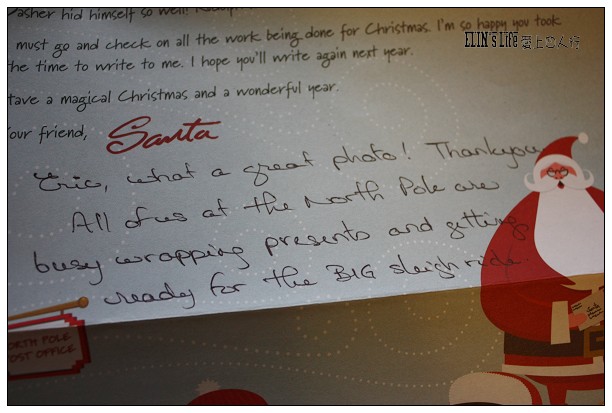 Dasher hid himself so well!
must go and check on all the work being done for Christmas. I'm so happy you took
the time to write to me. I hope you'll write again next year.
Have a magical Christmas and a wonderful year.
Your friend,
Santa
Eric, what a great photo! Thankyou
All of us at the North Pole are
busy wrapping presents and getting
ready for the BIG sleigh ride.
NORTH POLE
POST OFFICE
ELIN's Life 愛上忘人行